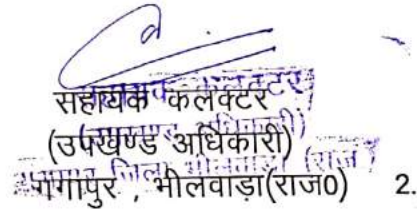 सहायक कलेक्टर
(उपखण्ड अधिकारी)
गंगापुर , भीलवाड़ा(राज0) 2.